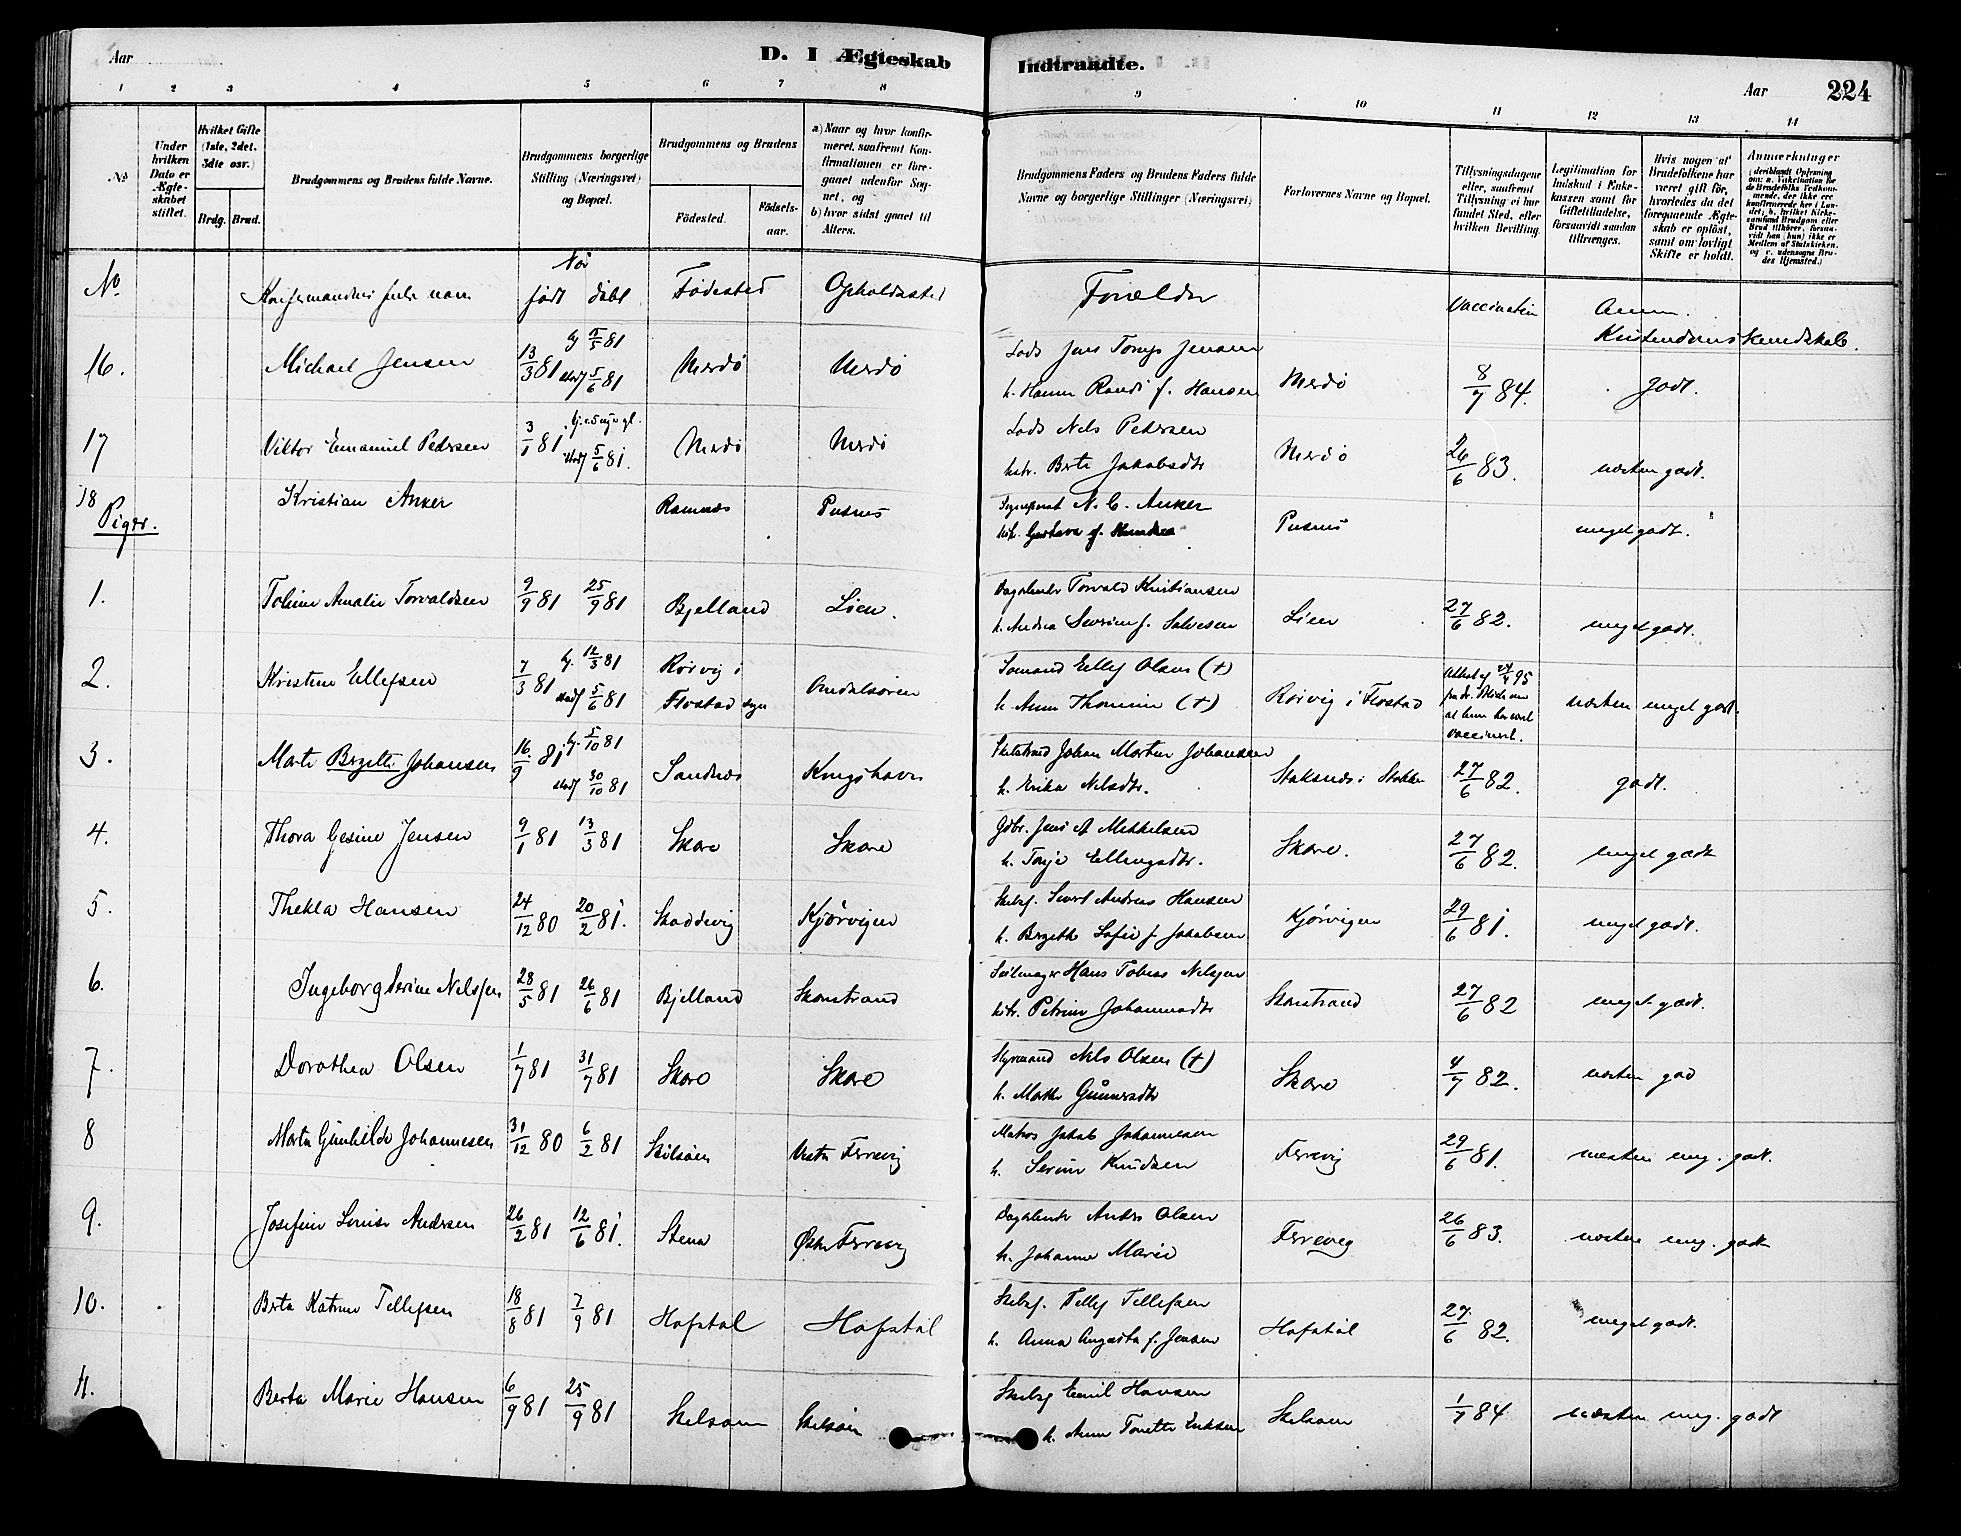 Aar
D. I Ægteskab Indtraadte.
Aar 224
1 2 3 4 5 6 7 8 9 10 11 12 13 14
No
Under hvilken Dato er Ægteskabet stiftet.
Hvilket Gifte (1ste, 2det, 3die osv.)
Brdg. Brud.
Brudgommens og Brudens fulde Navne.
Brudgommens borgerlige Stilling (Næringsvei) og Bopæl.
Brudgommens og Brudens
Fødested.
Fødselsaar.
a) Naar og hvor konfirmeret, saafremt Konfirmationen er foregaaet udenfor Sognet, og
b) hvor sidst gaaet til Alters.
Brudgommens Faders og Brudens Faders fulde Navne og borgerlige Stillinger (Næringsvei)
Forlovernes Navne og Bopæl.
Tillysningsdagene eller, saafremt Tillysning ei har fundet Sted, efter hvilken Bevilling.
Legitimation for Indskud i Enkekassen samt for Giftetilladelse, forsaavidt saadan tiltrænges.
Hvis nogen af Brudefolkene har været gift før, hvorledes da det foregaaende Ægteskab er opløst, samt om lovligt Skifte er holdt.
Anmærkninger (deriblandt Oplysning om: a. Vakcination for de Brudefolks Vedkommende, der ikke ere konfirmerede her i Landet; b. hvilket Kirkesamfund Brudgom eller Brud tilhører, forsaavidt han (hun) ikke er Medlem af Statskirken, og c. udensogns Brudes Hjemsted.)
No Konfirmandens fulde navn Når født døbt Fødested Opholdssted Forældre Vaccination Anm. Kristendomskundskab.
16. Michael Jensen 13/3 81 5/6 81 Merdø Merdø Lods Jens Jensen
h. Randi f. Hansen Merdø 8/7 84. godt.
17 Viktor Emanuel Pedersen 3/1 81 5/6 81. Merdø Merdø Lods Nels Pedersen
Jakobsdtr Merdø 26/6 83. næsten godt.
18 Kristian Anker Ramnes Pusnes N. C. Anker
Gustava f. Pusnes meget godt.
Piger.
1. Amalie Torvaldsen 9/9 81 25/9 81 Bjelland Lien. Torvald Kristiansen
h. Andrea Severine f. Salvesen Lien 27/6 82. meget godt.
2. Kristine Ellefsen 7/3 81 12/3 81 5/6 81 Rørvig i Flostad sogn Ellef Olsen (+)
h. Anne (+) Rørvig i Flostad Attest af 95 at hun har været vaccinert. næsten meget godt.
3. Marte Bergitte Johansen 16/9 81 5/10 81 30/10 81 Sandnes Kongshavn Johan Martin Johansen
h. Erika Nilsdtr. i Stokke 27/6 82. godt.
4. Thora Gesine Jensen 9/1 81 13/3 81 Skare Skare Gdbr. Jens A Mikkelsen
h. Tonje Ellingsdtr. Skare. 27/6 82. meget godt
5. Thekla Hansen 24/12 80 20/2 81. Skaddevig Kjørvigen Andreas Hansen
h. Sofie f. Jakobsen Kjørvigen 29/6 81. meget godt.
6. Ingeborg Serine Nelsen 28/5 81 26/6 81 Bjelland Skarstrand Seilmager Hans Tobias Nelsen
Petrine Johannesdtr Skarstrand 27/6 82 meget godt.
7. Dorothea Olsen 1/7 81 31/7 81 Skare Skare Styrmand Nils Olsen (+)
h. Marthe Gunnersdtr Skare 4/7 82. næsten god
8 Marta Gunhilde Johannesen 31/12 80 6/2 81 Skilsøen Vestre Færevig Matros Jakob Johannesen
h. Serine Knudsen Færevig 29/6 81. næsten meg. godt.
9. Josefine Lovise Andersen 26/2 81 12/6 81. Østre Færevig Anders Olsen
h. Johanne Marie Færevig 26/6 83. næsten meg. godt
10. Berta Katrine Tellefsen 18/8 81 7/9 81 Hafstøl Hafstøl Skibsf. Tellef Tellefsen
h. Anna Augusta f. Jensen Hafstøl 27/6 82. meget godt.
11. Berta Marie Hansen 6/9 81 25/9 81 Skilsøen Skilsøen Emil Hansen
h. Anne Tonette Eriksen Skilsøen 1/7 84 næsten meg. godt